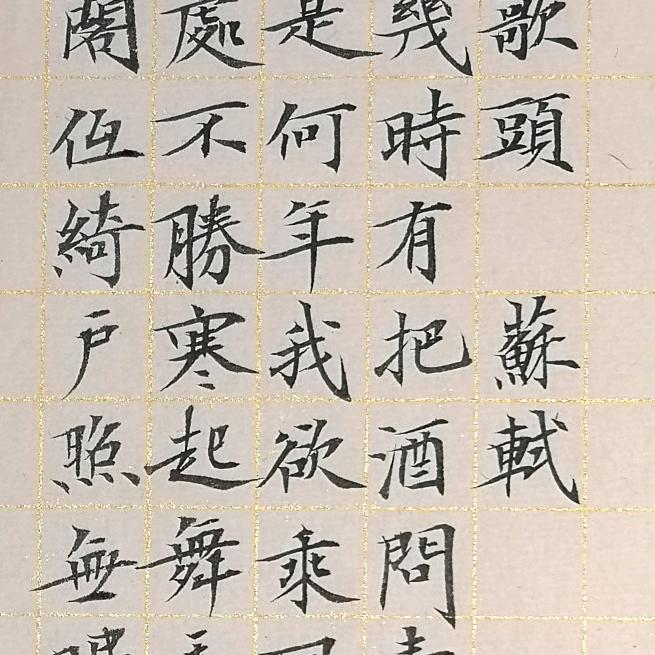 歌頭 蘇軾
幾時有把酒問青
是何年我欲乘
處不勝寒起舞
閣低綺戶照無